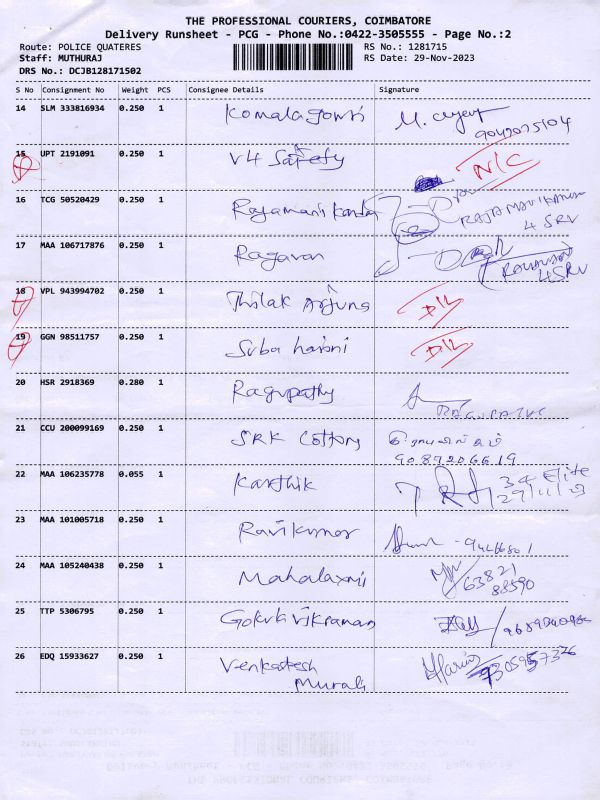 THE PROFESSIONAL COURIERS, COIMBATORE
Delivery Runsheet - PCG - Phone No.:0422-3505555 - Page No.:2
Route: POLICE QUATERES RS No.: 1281715
Staff: MUTHURAJ RS Date: 29-Nov-2023
DRS No.: DCJB128171502
S No Consignment No Weight PCS Consignee Details Signature
14 SLM 333816934 0.250 1 Komalagowri
9042075104
15 UPT 2191091 0.250 1 V4 Safety N/C
16 TCG 50520429 0.250 1 Rajamanikandan
RAJAMANIKANDAN
4 SRV
17 MAA 106717876 0.250 1 Ragavan
4SRV
18 VPL 943994702 0.250 1 Thilak Arjuna D/L
19 GGN 98511757 0.250 1 Suba harini D/L
20 HSR 2918369 0.280 1 Ragupathy
21 CCU 200099169 0.250 1 SRK Cottons
9087206619
22 MAA 106235778 0.055 1 Karthik 34 Elite
29/11/23
23 MAA 101005718 0.250 1 Ravikumar
24 MAA 105240438 0.250 1 Mahalaxmi 63821
88590
25 TTP 5306795 0.250 1 Gokul Vikraman
26 EDQ 15933627 0.250 1 Venkatesh
Murali